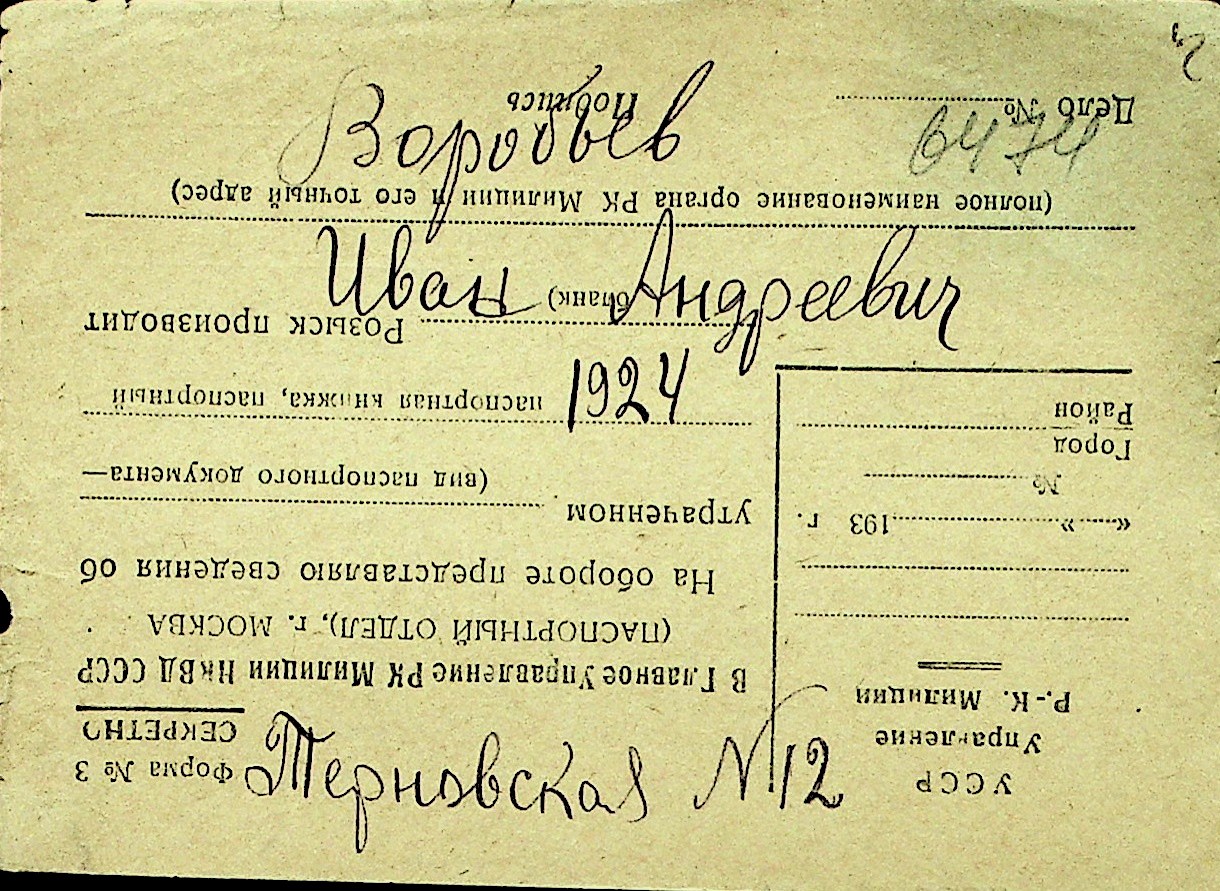 6474
Воробьев
Иван Андреевич
1924
Терновская N 12
УССР
Управление
Р.-К. Милиции
« » 193 г.
№
Город
Район
Форма № 3
СЕКРЕТНО
В Главное Управление РК Милиции НКВД СССР
(ПАСПОРТНЫЙ ОТДЕЛ), г. МОСКВА
На обороте представляю сведения об
утраченном
(вид паспортного документа—
паспортная книжка, паспортный
бланк) Розыск производит
(полное наименование органа РК Милиции и его точный адрес)
Дело № Подпись